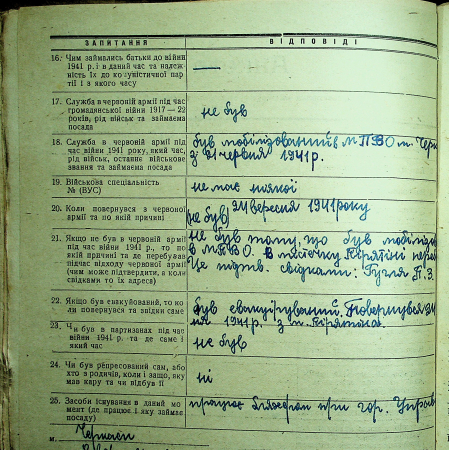 ЗАПИТАННЯ
ВІДПОВІДІ
16. Чим займались батьки до війни
1941 р. і в даний час та належ-
ність їх до комуністичної пар-
тії і з якого часу
—
17. Служба в червоній армії під час
громадянської війни 1917—22
років, рід військ та займаема
посада
не був
18. Служба в червоній армії під
час війни 1941 року, який час,
рід військ, останне військове
звання та займаема посада
був мобілізований в МПВО м. Черк
з 21 червня 1941 р.
19. Військова спеціальність
№ (ВУС)
не має ніякої
20. Коли повернувся з червоної
армії та по якій причині
не був 24 вересня 1941 року
21. Якщо не був в червоній армії
під час війни 1941 р., то по
якій причині та де перебував
під час відходу червоної армії
(чим може підтвердити, а коли
свідками то їх адреса)
не був тому, що був мобілізо
в МПВО. В містечку Пірятіні
Це підтв. свідками: П. З.
22. Якщо був евакуйований, то ко-
ли повернувся та звідки саме
був евакуїруваний. Повернувся
1941 р. з м. Пірятина.
23. Чи був в партизанах під час
війни 1941 р. та де саме і
який час
не був
24. Чи був репресований сам, або
хто з родичів, коли і защо, яку
мав кару та чи відбув її
ні
25. Засоби існування в даний мо-
мент (де працює і яку займає
посаду)
працює при гор. Управ
м. Черкаси